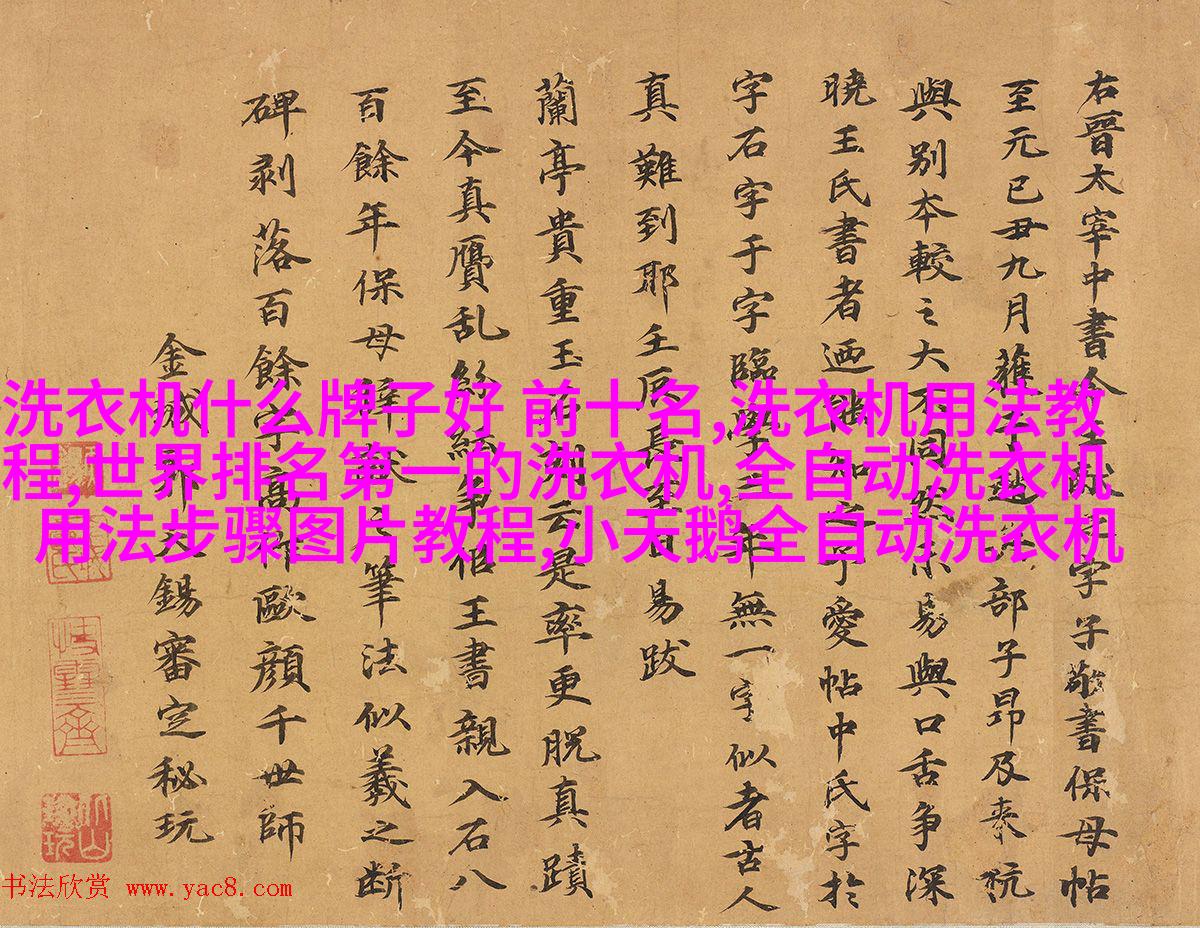 洗衣机什么牌子好 前十名,洗衣机用法教
程,世界排名第一的洗衣机,全自动洗衣机
用法步骤图片教程,小天鹅全自动洗衣机
右晉太宰中書令王字子敬書保母帖
至元己丑九月部子昂及來杭
與別本較之大不同易與口舌争深
曉王氏書者迺知之予愛帖中氏字於
字石字于字臨學年無一字似者古人
真難到耶壬辰長至日易跋
蘭亭貴重玉石刻云是率更脱真蹟
至今真贗乱紛紜争王書親入石八
百餘年保母之筆法似羲之断
碑剥落百餘字高作歐顔千世師
金城郭天錫審定秘玩
书法欣赏 www.yac8.com